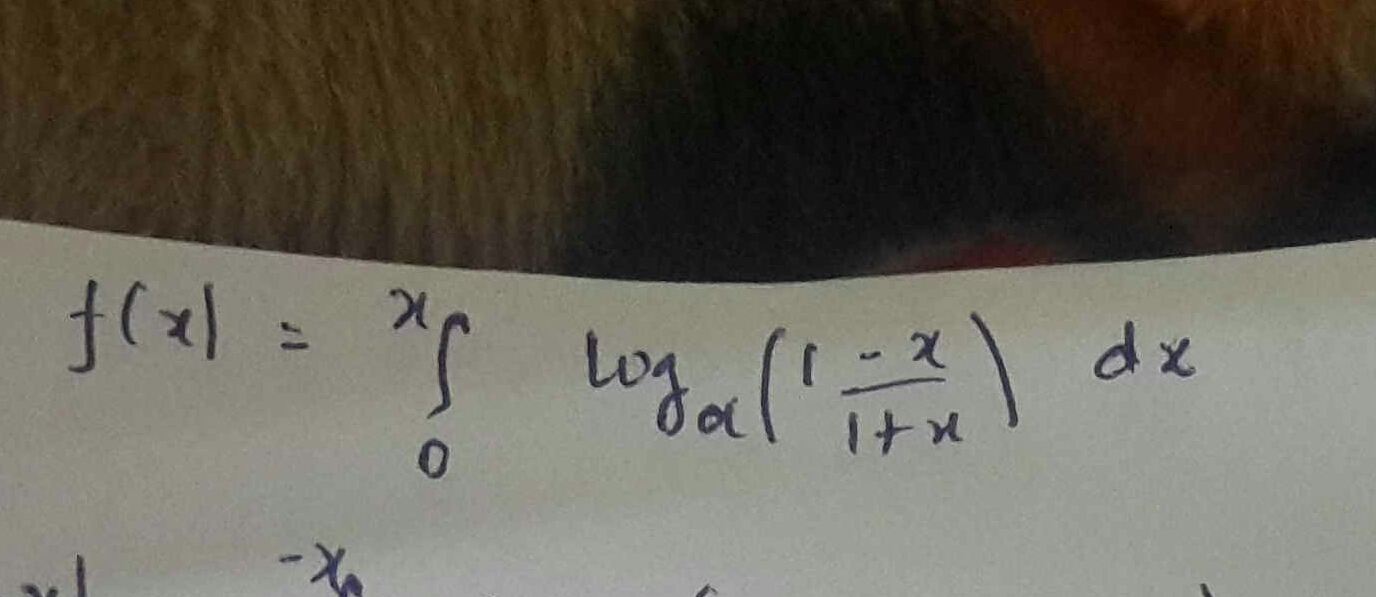 f(x) = ˣ∫₀ logₐ((1-x)/(1+x)) dx
-x